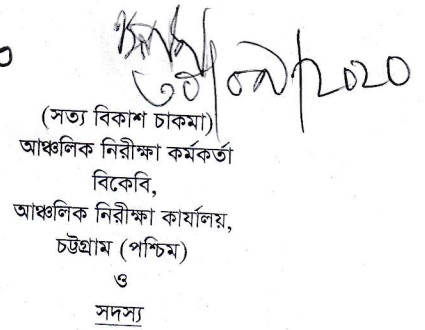 (সত্য বিকাশ চাকমা)
আঞ্চলিক নিরীক্ষা কর্মকর্তা
বিকেবি,
আঞ্চলিক নিরীক্ষা কার্যালয়,
চট্টগ্রাম (পশ্চিম)
ও
সদস্য